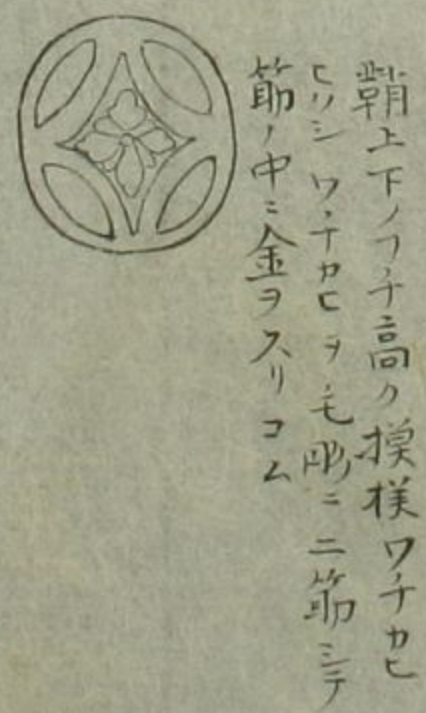 鞘上下ノフチ高ク摸様ワチカヒ
ヒリシワチカヒヲ毛彫ニ二筋ミテ
筋ノ中ニ金ヲスリコム